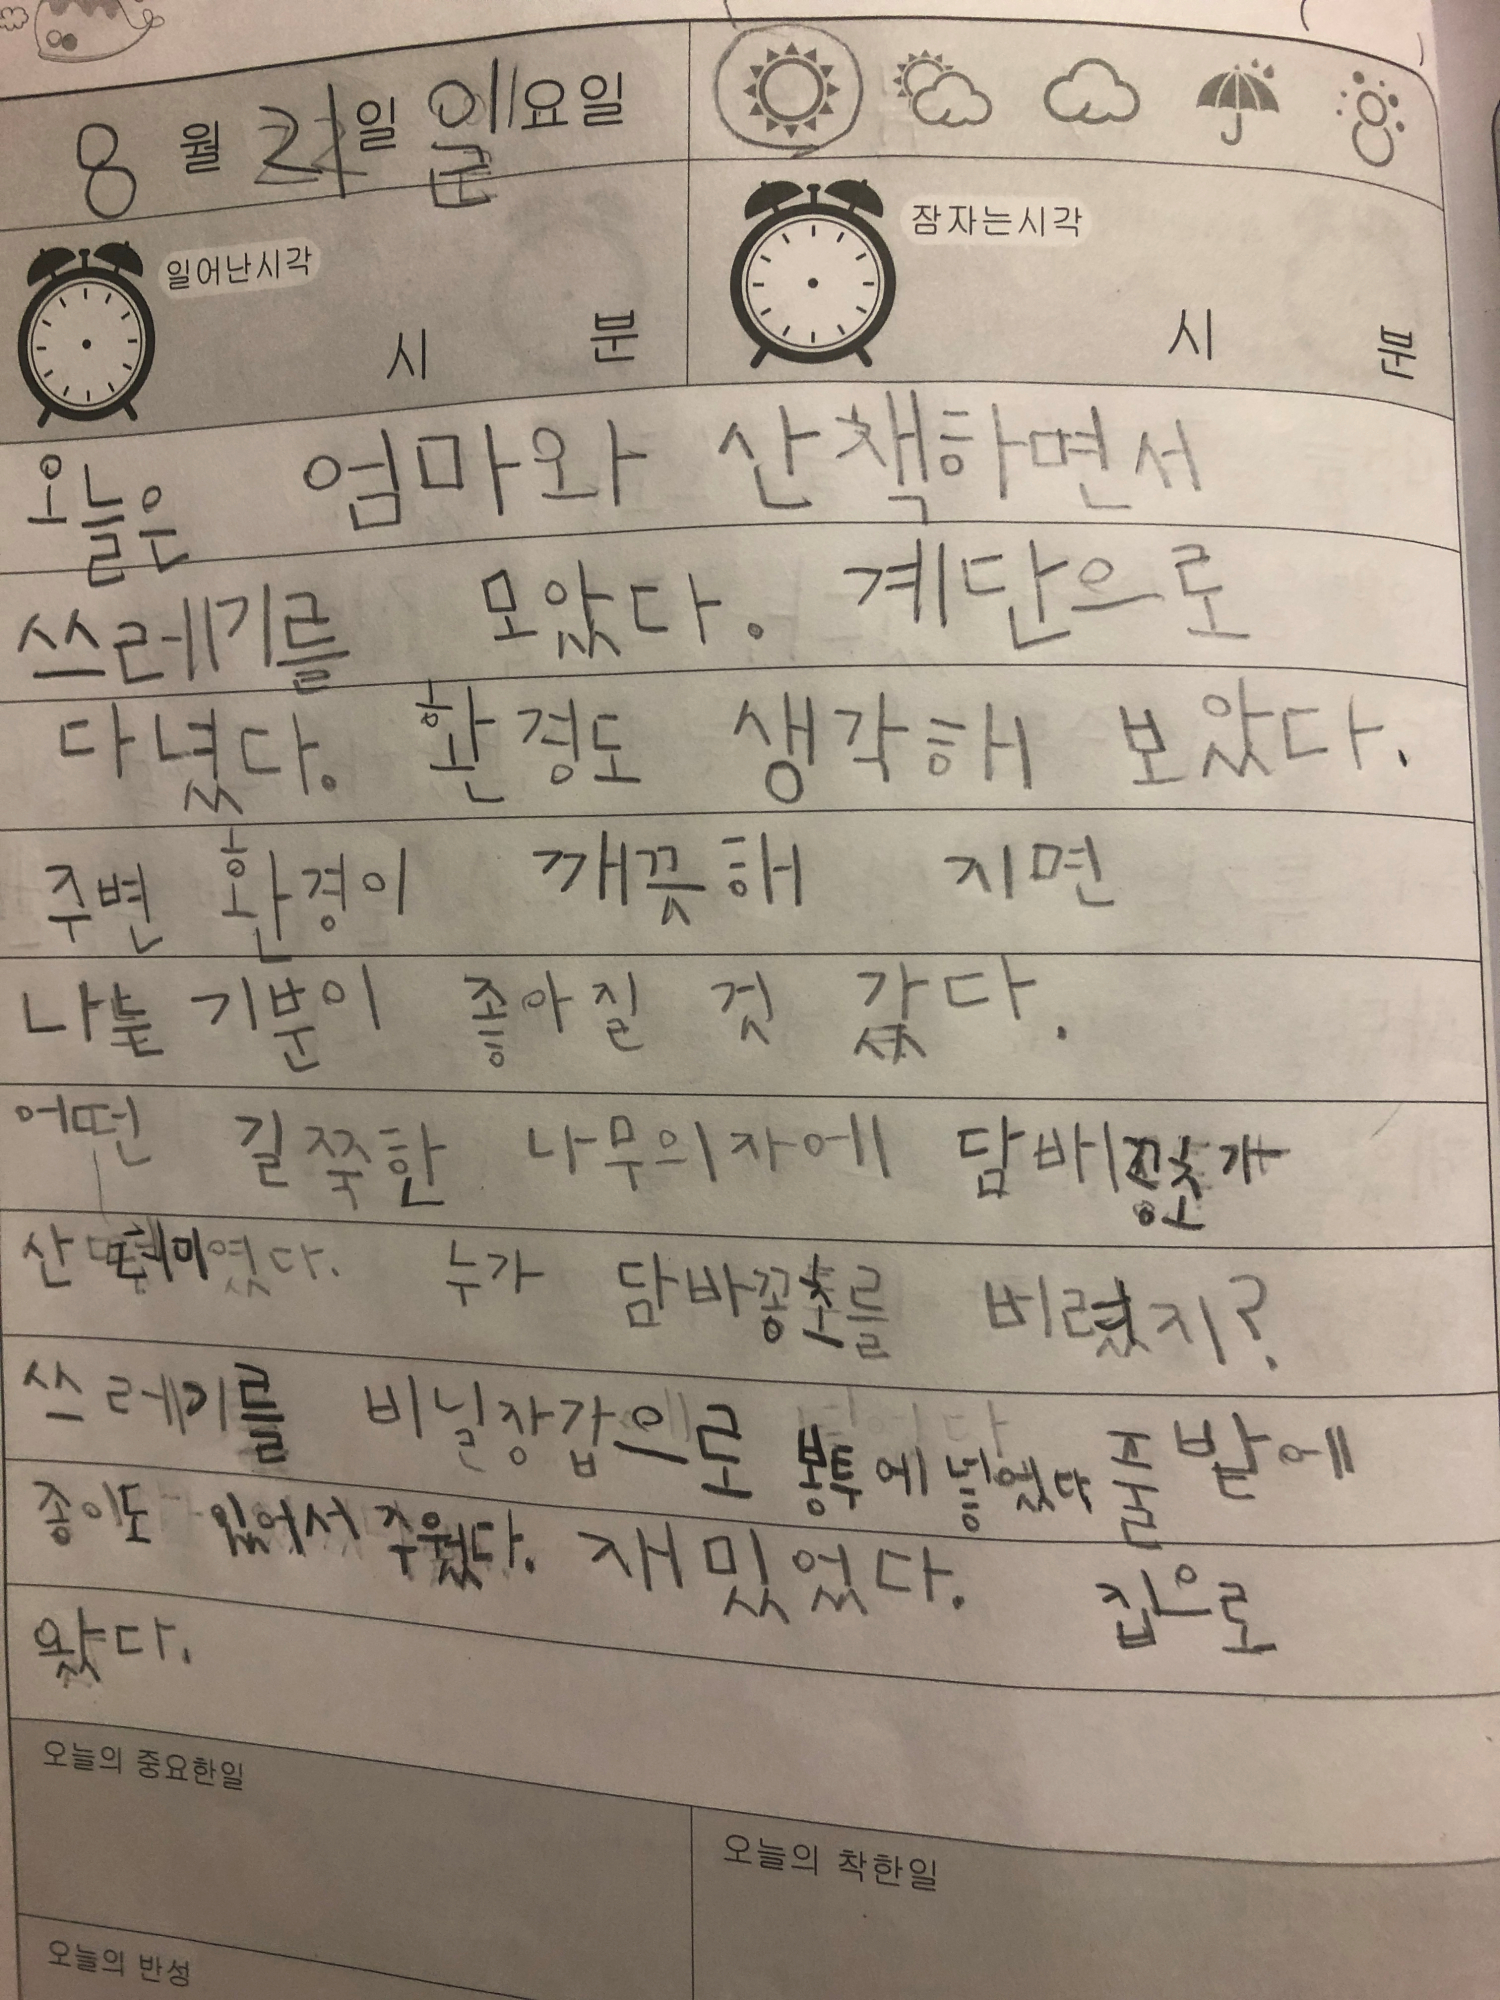 8월 21일 일요일
일어난시각
시 분
잠자는시각
시 분
오늘은 엄마와 산책하면서
쓰레기를 모았다. 계단으로
다녔다. 환경도 생각해 보았다.
주변 환경이 깨끗해 지면
나는 기분이 좋아질 것 같다.
어떤 길쭉한 나무의자에 담배꽁초가
산더미였다. 누가 담바꽁초를 버렸지?
쓰레기를 비닐장갑으로 봉투에 넣었다 줄밭에
종이도 있어서 주웠다. 재밌었다. 집으로
왔다.
오늘의 중요한일
오늘의 착한일
오늘의 반성